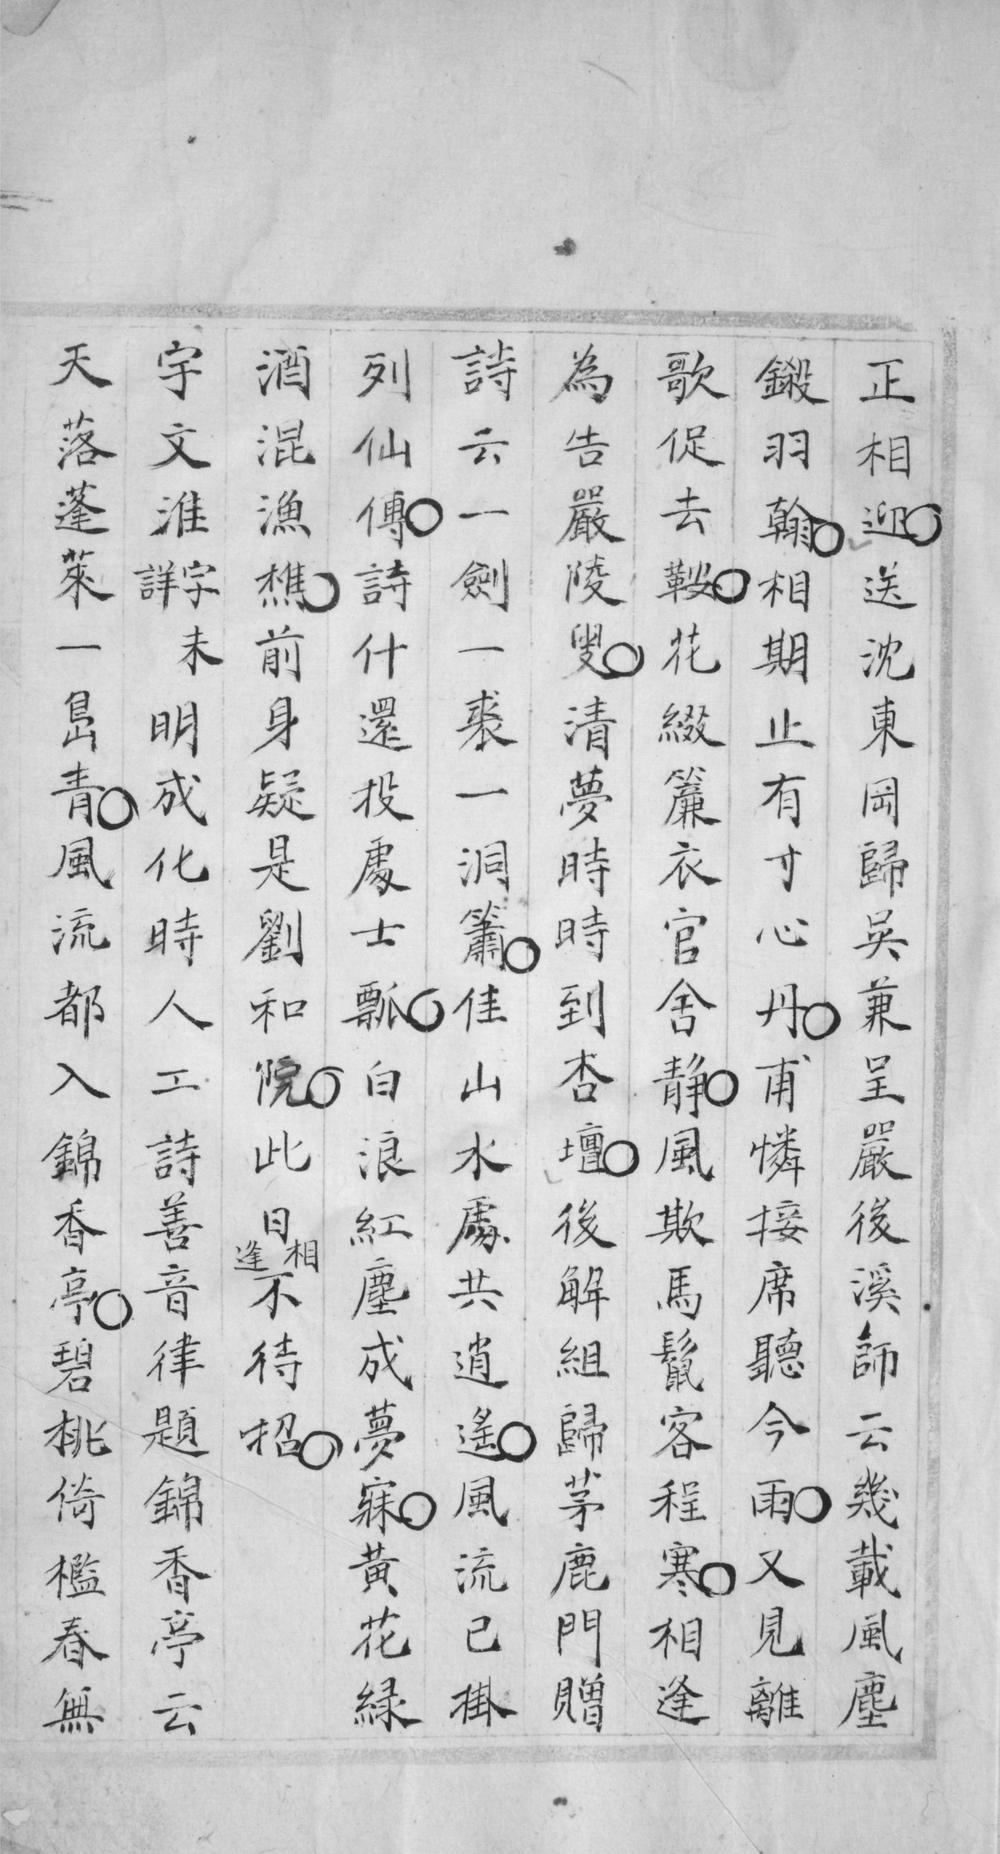 正相迎送沈東岡歸吳兼呈嚴後溪師云幾載風塵
鎩羽翰相期止有寸心丹甫憐接席聽今雨又見離
歌促去鞍花綴簾衣官舍靜風欺馬鬣客程寒相逢
為告嚴陵叟清夢時時到杏壇後解組歸茅鹿門贈
詩云一劍一裘一洞簫佳山水處共逍遙風流已掛
列仙傳詩什還投處士瓢白浪紅塵成夢寐黃花綠
酒混漁樵前身疑是劉和院此日相逢不待招
宇文淮字未詳明成化時人工詩善音律題錦香亭云
天落蓬萊一島青風流都入錦香亭碧桃倚檻春無